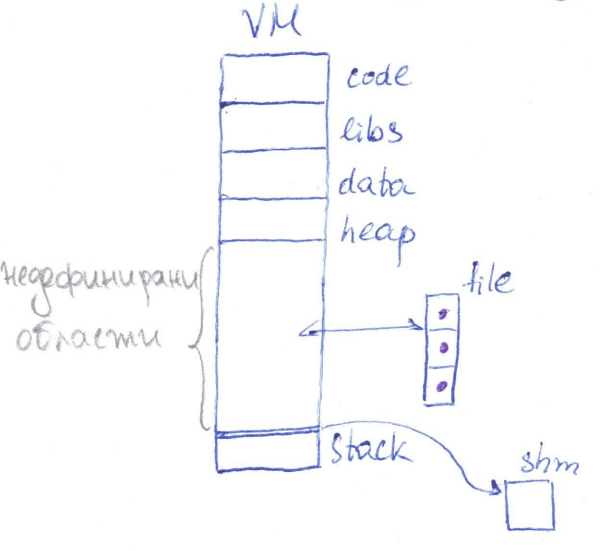 VM
code
libs
data
heap
недефинирани
области
file
stack
shm